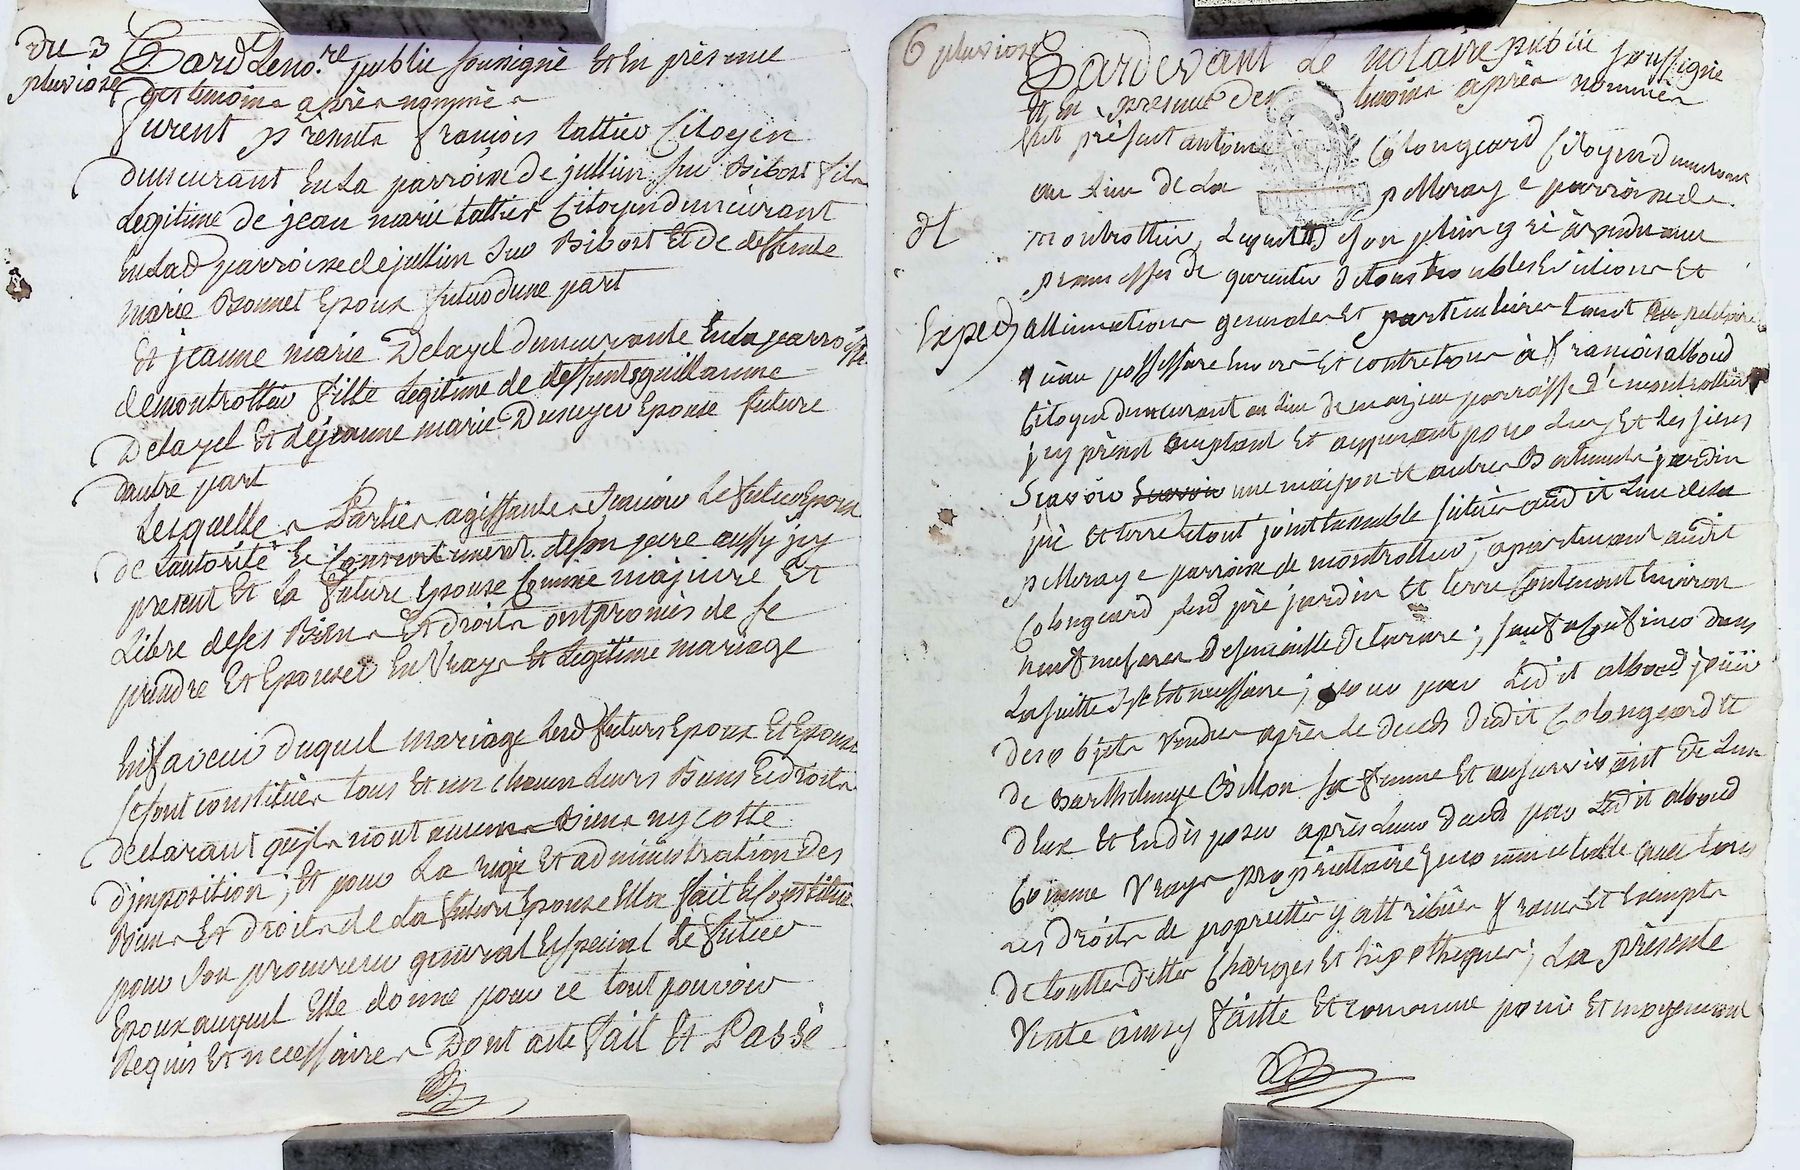 du 3
pluviose
Pard Le no.re public sousigné Et En présence
des temoins après nommés
furent présents françois tattier Citoyen
demeurant En La parroisse de jullien su Bibost fils
Legitime de jean marie tattier Citoyen demeurant
En Lad parroisse de jullien sur Bibost Et de deffunte
marie Bonnet Epoux futur dune part
Et jeanne marie Delayel demeurante En La parroisse
de montrottier fille Legitime de deffunts guillaume
Delayel Et de jeanne marie Epouse future
dautre part
Lesquelles Parties agissantes sçavoir Le futur Epoux
de Lautorité Et Consentement de son pere aussy icy
present Et La future Epouse Comme majeure Et
Libre de ses Biens Et droits ont promis de se
prendre Et Epouser En Vraye Et Legitime mariage
En faveur duquel mariage Lesd futurs Epoux Et Epouse
se sont constitués tous Et un chacun Leurs Biens Et droits
declarant quils nont aucuns Biens ny cotte
d'imposition; Et pour La regie Et administration des
Biens Et droits de La future Epouse Elle fait Et Constitue
pour son procureur general Et special Le futur
Epoux auquel Elle donne pour ce tout pouvoir
Requis Et necessaires Dont acte fait Et Passé
6 pluviose
Pardevant Le notaire public soussigné
Et En presence des temoins après nommés
fut présent antoine Colongeard Citoyen demeurant
au Lieu de La pelleraye parroisse de
Et
montrottier, Lequel de son plein gré a vendu avec
promesses de garentir de tous troubles Evictions Et
Exped
allienations generales Et particulieres tant au petitoire
qu'au possessoire Envers Et contre tous à françois alboud
Citoyen demeurant au Lieu de parroisse de montrottier
icy présent acceptant Et acquerant pour Luy Et Les siens
Sçavoir une maison Et autres Batiments jardin
pré Et terre Le tout joint Ensemble situés audit Lieu de La
pelleraye parroisse de montrottier, apartenant audit
Colongeard Lesd pré jardin Et terre Contenant Environ
neuf mesures de semaille de tarare; sauf a Confiner dans
La suitte s'il Est necessaire; pour par Ledit alboud jouir
des objets Vendus après Le deces dudit Colongeard Et
de Barthelemye Billon sa femme Et au survivant de Lun
d'Eux Et En disposer après Leur deces par Ledit alboud
Comme Vraye proprietaire incommutable avec tous
Les droits de proprietté y attribués francs Et Exempts
de touttes dettes Charges Et hipotheques; La présente
Vente ainsy faitte Et convenue pour Et moyennant